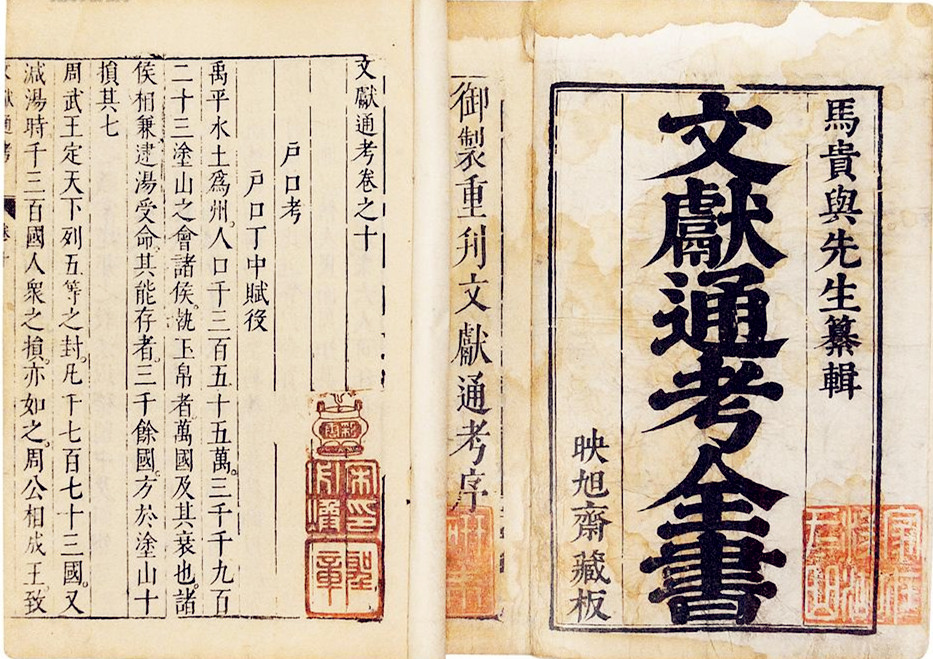 馬貴與先生纂輯
文獻通考全書
映旭齋藏板
御製重刊文獻通考序
文獻通考卷之十
戶口考
戶口丁中賦役
禹平水土爲州。人口千三百五十五萬。三千千九百
二十三塗山之會諸侯。執玉帛者萬國及其衰也。諸
侯相兼逮湯受命其能存者。三千餘國。方於塗山十
損其七
周武王定天下列五等之封。凡千七百七十三國。又
減湯時千三百國人衆之損。亦如之。周公相成王致